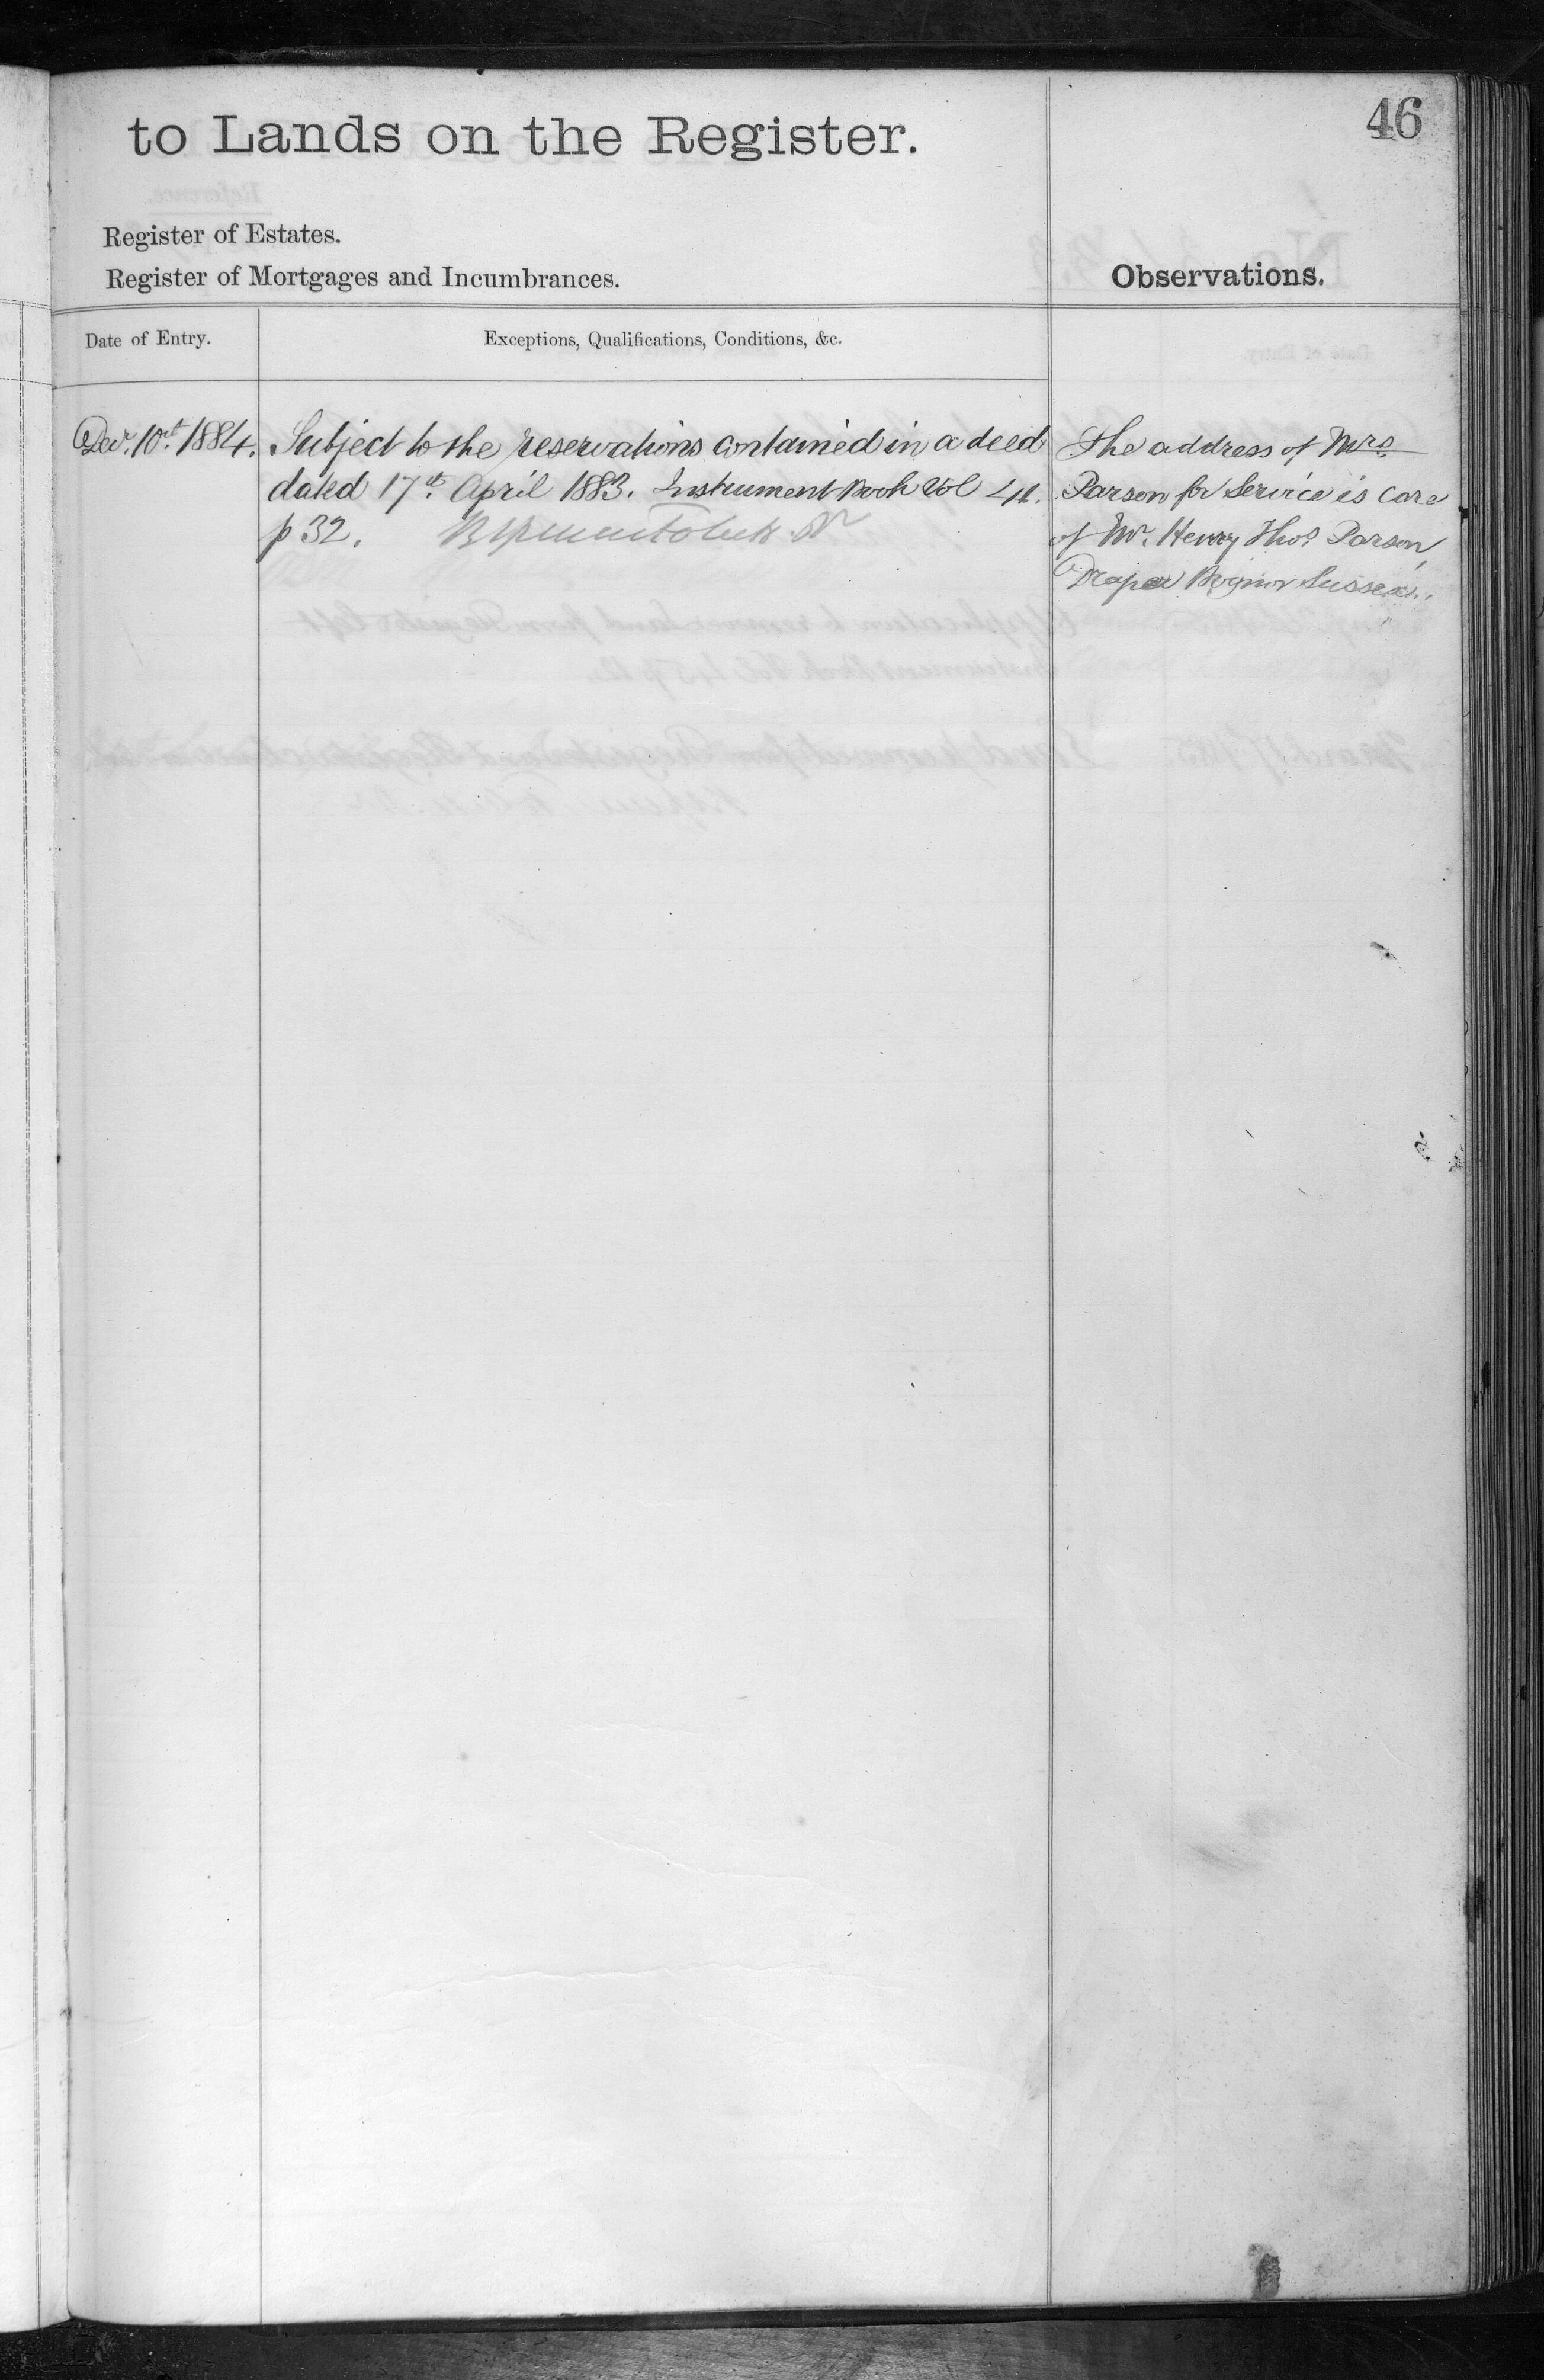 46
to Lands on the Register.
Register of Estates.
Register of Mortgages and Incumbrances.
Observations.
Date of Entry.
Exceptions, Qualifications, Conditions, &c.
Decr. 10th 1884.
Subject to the reservations contained in a deed
dated 17th April 1883. Instrument Book Vol
p 32.
The address of Mrs.
Parson for Service is Care
of Mr. Henry Thos Parson,
Draper Bognor Sussex.